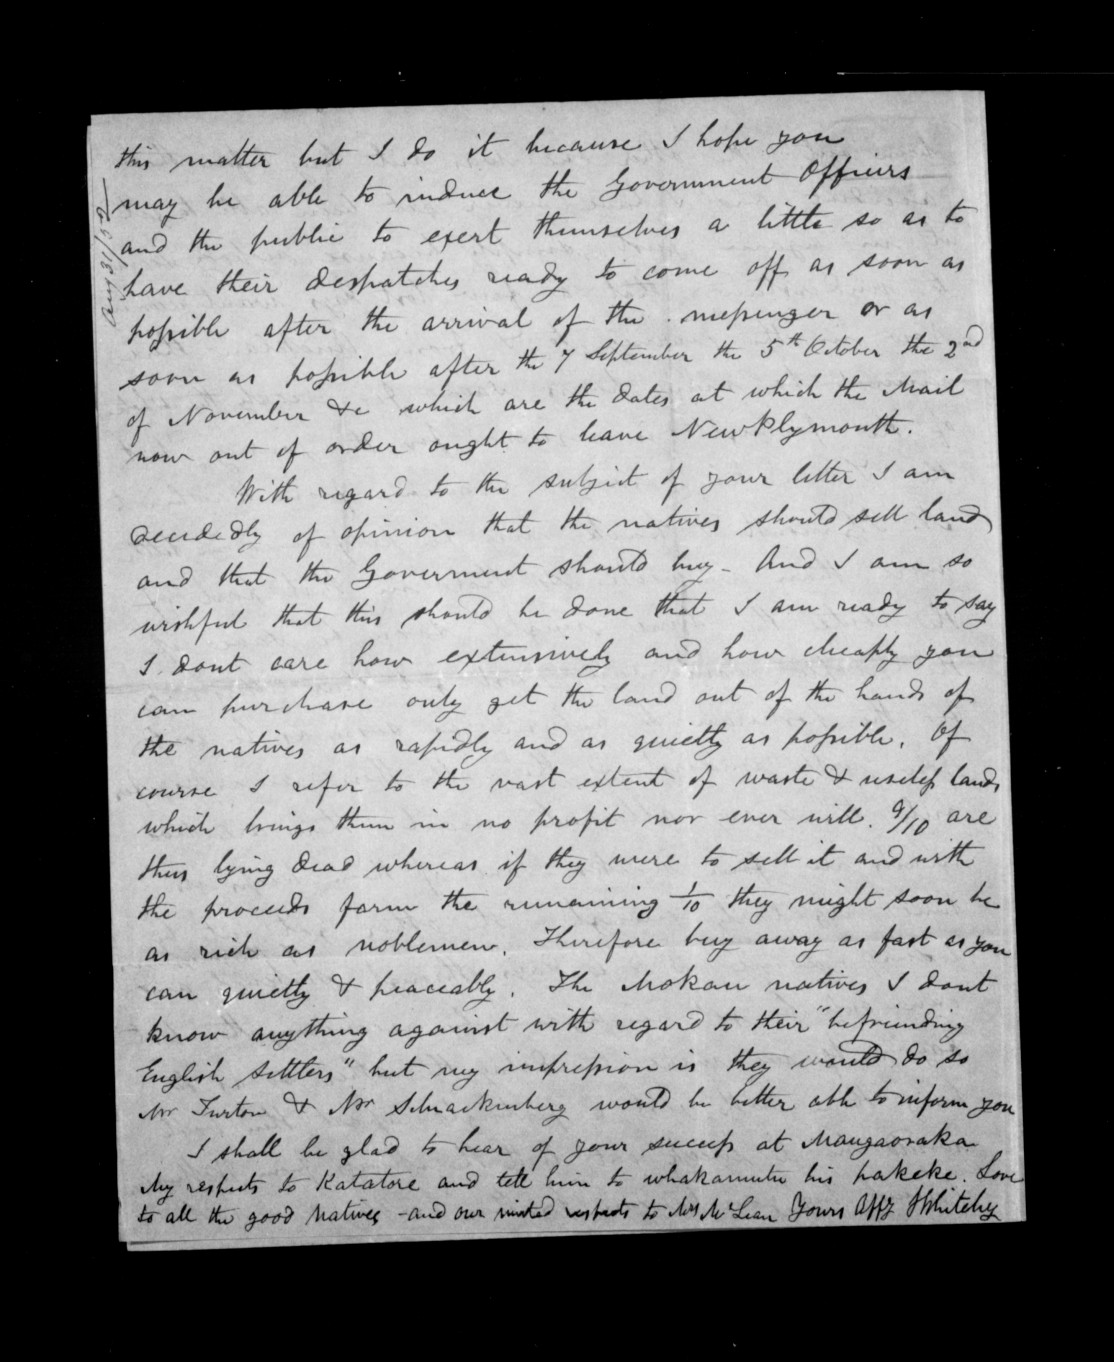 this matter but I do it because I hope you
may be able to induce the Government Officers
and the public to exert themselves a little so as to
have their despatches ready to come off as soon as
possible after the arrival of the messenger or as
soon as possible after the 7 September the 5th October the 2nd
of November &c which are the dates at which the Mail
now out of order ought to leave New Plymouth.
With regard to the subject of your letter I am
decidedly of opinion that the natives should sell land
and that the Goverment should buy - And I am so
wishful that this should be done that I am ready to say
I dont care how extensively and how cheaply you
can purchase only get the land out of the hands of
the natives as rapidly and as quietly as possible. Of
course I refer to the vast extent of waste & useless lands
which brings them in no profit nor ever will. 9/10 are
thus lying dead whereas if they were to sell it and with
the proceeds farm the remaining 1/10 they might soon be
as rich as noblemen. Therefore buy away as fast as you
can quietly & peaceably. The Mokau natives I dont
know anything against with regard to their "befriending
English settlers" but my impression is they would do so
Mr Turton & Mr Schnackenberg would be better able to inform you
I shall be glad to hear of your success at Mangaoraka
My respects to Katatore and tell him to whakamutu his pakeke. Love
to all the good Natives - and our united respects to Mrs McLean Yours Affy J Whiteley
Aug 31/52